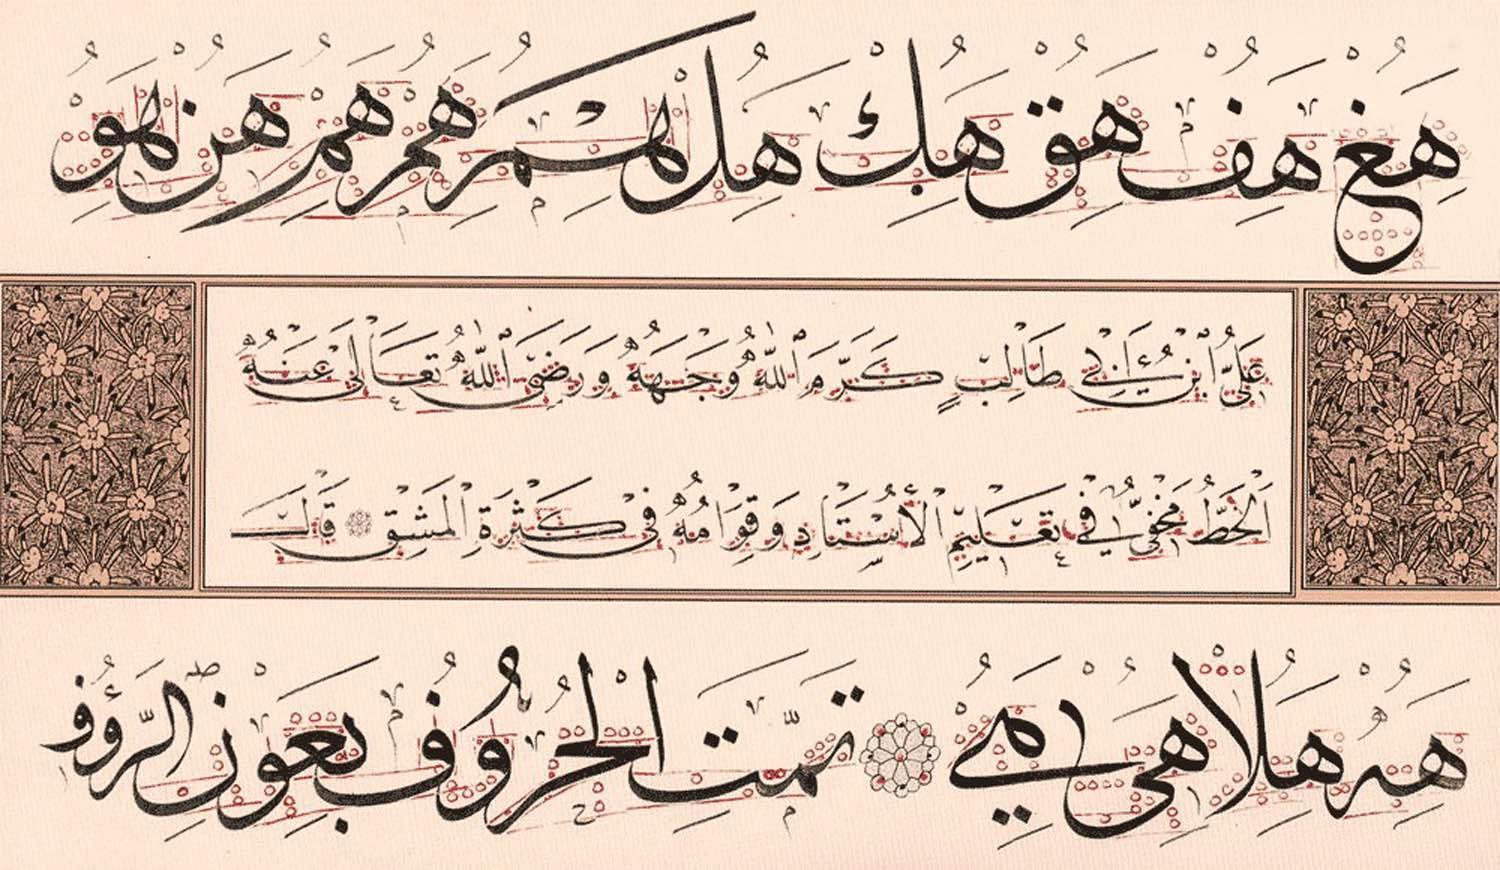 هغ هف هق هك هل هم هم هم هن هو
عَلِيُّ ابْنُ أَبِي طَالِبٍ كَرَّمَ اللهُ وَجْهَهُ وَرَضِيَ اللهُ تَعَالَى عَنْهُ
اَلْخَطُّ مَخْفِيٌّ فِي تَعْلِيمِ الْأُسْتَاذِ وَقِوَامُهُ فِي كَثْرَةِ الْمَشْقِ قَالَ
هه هلا هي تَمَّتِ الْحُرُوفُ بِعَوْنِ الرَّؤُوفِ